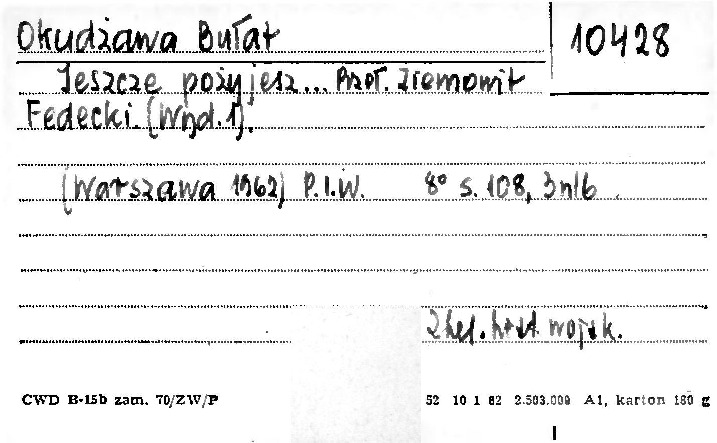 Okudżawa Bułat
10428
Jeszcze pożyjesz... Przeł. Ziemowit
Fedecki. (Wyd. 1).
(Warszawa 1962) P.I.W. 8° s. 108, 3 nlb.
wojsk.
CWD B-15b zam. 70/ZW/P
52 10 1 62 2.503.000 A1, karton 180 g